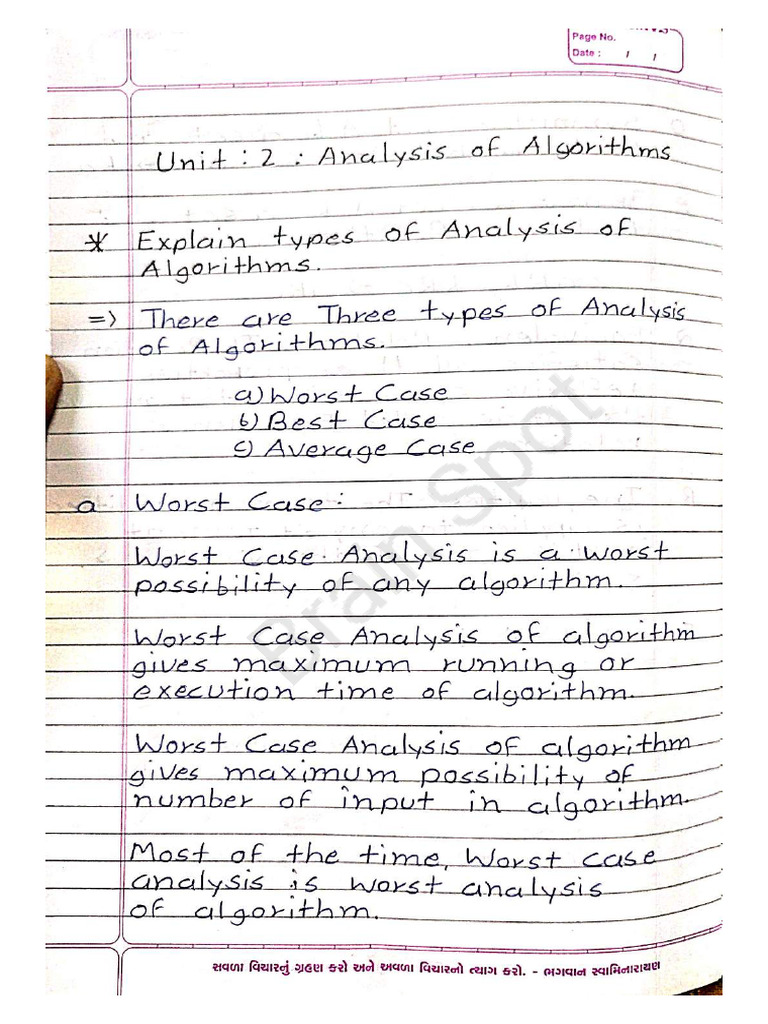 Page No.
Date : / /
Unit : 2 : Analysis of Algorithms
* Explain types of Analysis of
Algorithms.
=> There are Three types of Analysis
of Algorithms.
a) Worst Case
b) Best Case
c) Average Case
a Worst Case :
Worst Case Analysis is a worst
possibility of any algorithm.
Worst Case Analysis of algorithm
gives maximum running or
execution time of algorithm.
Worst Case Analysis of algorithm
gives maximum possibility of
number of input in algorithm.
Most of the time, Worst case
analysis is worst analysis
of algorithm.
Brain Spot
સવળા વિચારનું ગ્રહણ કરો અને અવળા વિચારનો ત્યાગ કરો. - ભગવાન સ્વામિનારાયણ